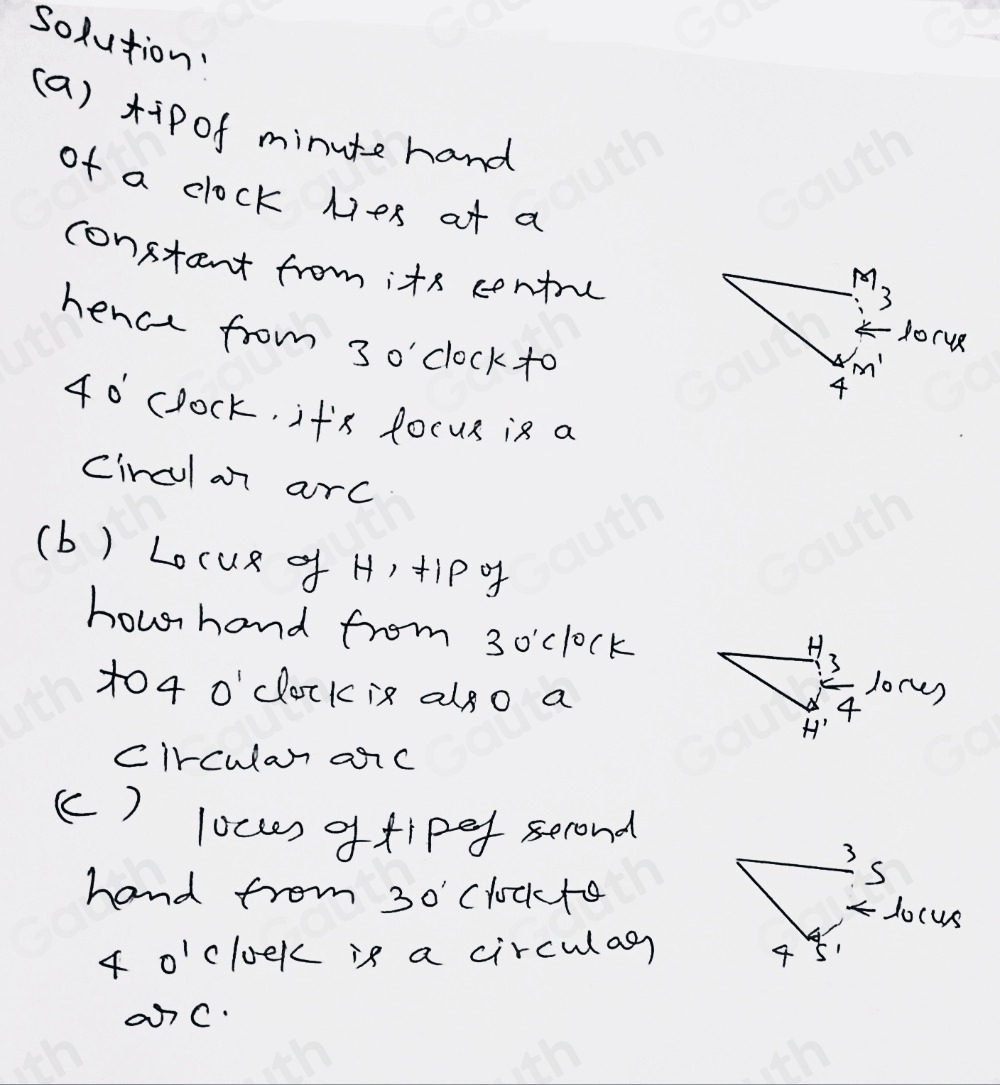 Solution:
(a) tip of minute hand
of a clock lies at a
constant from its centre
hence from 3 o'clock to
4 o'clock. it's locus is a
Circular arc.
M 3
← locus
M'
4
(b) Locus of H, tip of
hour hand from 3 o'clock
to 4 o'clock is also a
circular arc
H 3
← locus
4
H'
(c) locus of tip of second
hand from 3 o'clock to
4 o'clock is a circular
arc.
3 S
← locus
4 S'
Gauth